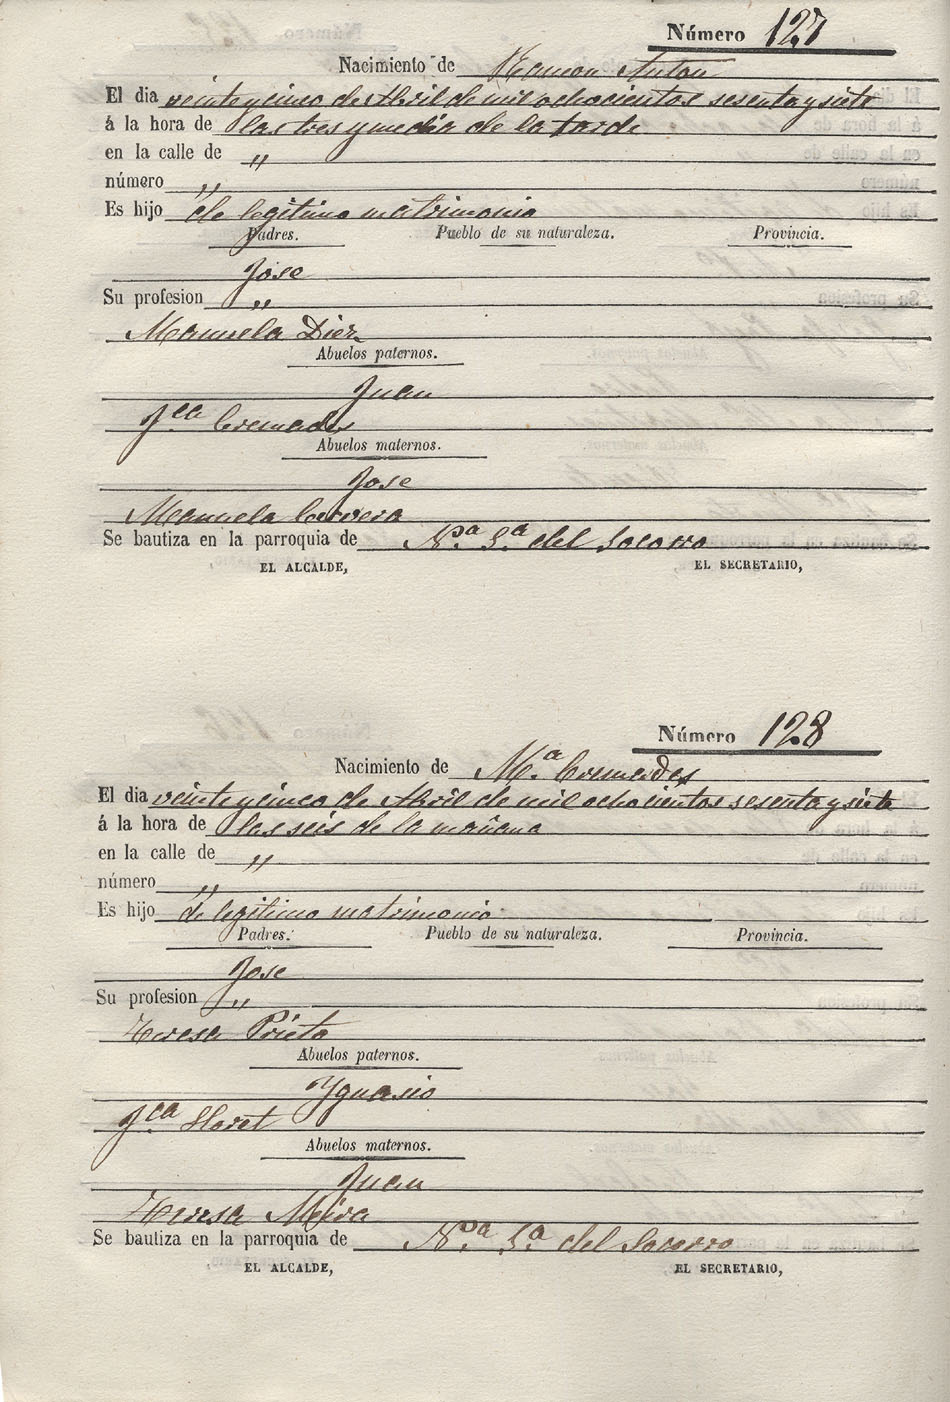 Número 127
Nacimiento de Ramon Anton
El dia veinte y cinco de Abril de mil ochocientos sesenta y siete
á la hora de las tres y media de la tarde
en la calle de "
número "
Es hijo de legitimo matrimonio
Padres. Pueblo de su naturaleza. Provincia.
Jose
Su profesion "
Manuela Diez
Abuelos paternos.
Juan
Fca. Cremades
Abuelos maternos.
Jose
Manuela Cervera
Se bautiza en la parroquia de Nra. Sa. del Socorro
EL ALCALDE, EL SECRETARIO,
Número 128
Nacimiento de Ma. Cremades
El dia veinte y cinco de Abril de mil ochocientos sesenta y siete
á la hora de las seis de la mañana
en la calle de "
número "
Es hijo de legitimo matrimonio
Padres. Pueblo de su naturaleza. Provincia.
Jose
Su profesion "
Teresa Prieto
Abuelos paternos.
Ygnasio
Fca. Lloret
Abuelos maternos.
Juan
Teresa Meira
Se bautiza en la parroquia de Nra. Sa. del Socorro
EL ALCALDE, EL SECRETARIO,